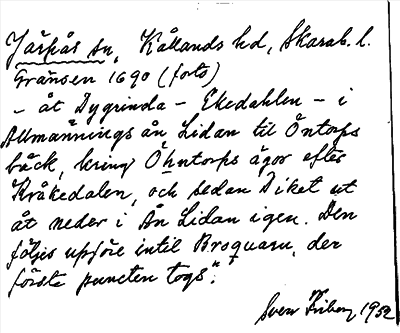 Järpås sn, Kållands hd, Skarab. l.
Gränsen 1690 (forts)
- åt Dygrinda - Ekedahlen - i
Allmännings ån Lidan til Öntorps
bäck, kring Öhntorps ägor efter
Kråkedalen, och sedan Diket ut
åt neder i Ån Lidan igen. Den
följes upföre intil Broquarn, der
förste puncten togs".
Sven Friberg 1952